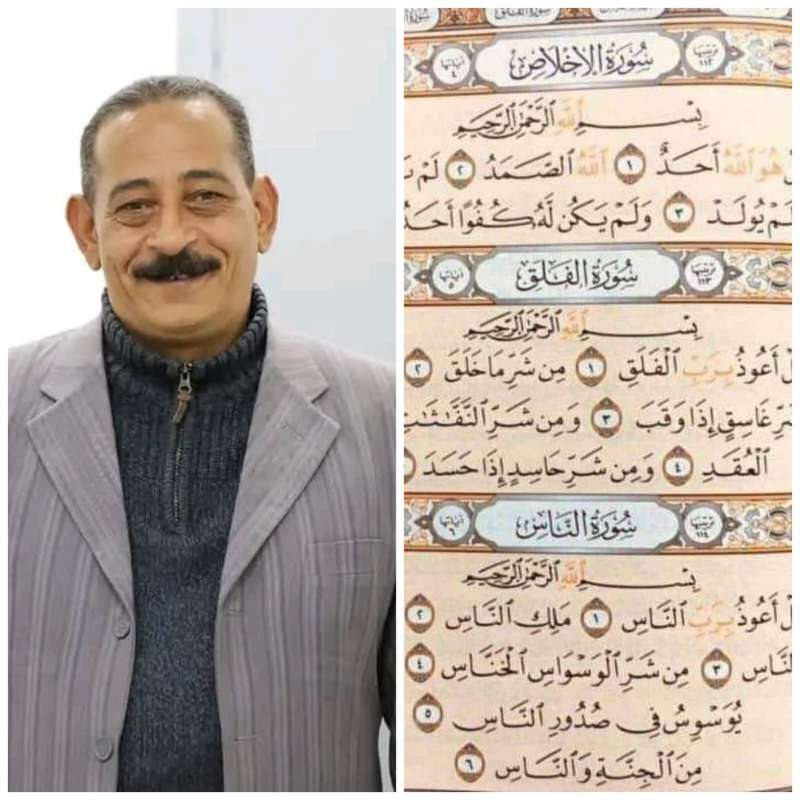 سُورَةُ الفَلَقِ
ترتيبها ١١٢ سُورَةُ الإِخْلَاصِ آياتها ٤
بِسْمِ ٱللَّهِ ٱلرَّحْمَٰنِ ٱلرَّحِيمِ
هُوَ ٱللَّهُ أَحَدٌ ١ ٱللَّهُ ٱلصَّمَدُ ٢ لَمْ
يُولَدْ ٣ وَلَمْ يَكُن لَّهُۥ كُفُوًا أَحَدٌ
ترتيبها ١١٣ سُورَةُ الفَلَقِ آياتها ٥
بِسْمِ ٱللَّهِ ٱلرَّحْمَٰنِ ٱلرَّحِيمِ
أَعُوذُ بِرَبِّ ٱلْفَلَقِ ١ مِن شَرِّ مَا خَلَقَ ٢
غَاسِقٍ إِذَا وَقَبَ ٣ وَمِن شَرِّ ٱلنَّفَّٰثَٰتِ
ٱلْعُقَدِ ٤ وَمِن شَرِّ حَاسِدٍ إِذَا حَسَدَ
ترتيبها ١١٤ سُورَةُ النَّاسِ آياتها ٦
بِسْمِ ٱللَّهِ ٱلرَّحْمَٰنِ ٱلرَّحِيمِ
أَعُوذُ بِرَبِّ ٱلنَّاسِ ١ مَلِكِ ٱلنَّاسِ ٢
ٱلنَّاسِ ٣ مِن شَرِّ ٱلْوَسْوَاسِ ٱلْخَنَّاسِ ٤
يُوَسْوِسُ فِي صُدُورِ ٱلنَّاسِ ٥
مِنَ ٱلْجِنَّةِ وَٱلنَّاسِ ٦